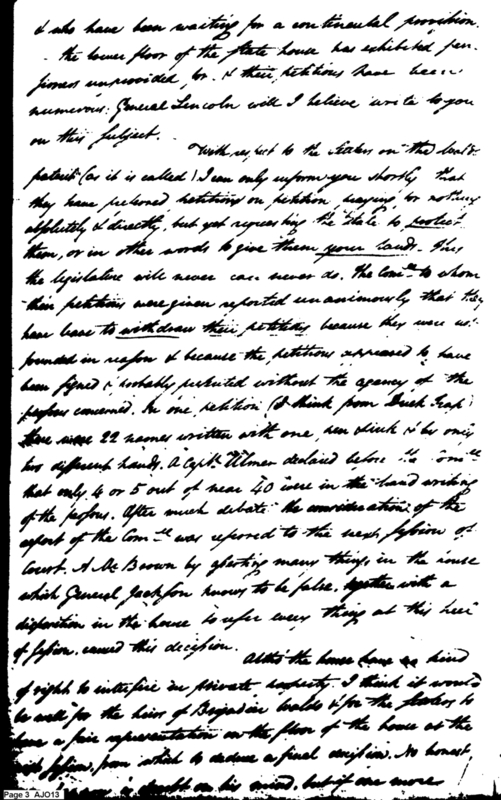 & who have been waiting for a continental provision.
the lower floor of the State house has exhibited pen-
sioners unprovided for & their petitions have been
numerous. General Lincoln will I believe write to you
on this subject.
With respect to the Settlers on the Waldo
patent (as it is called) I can only inform you shortly that
they have petitions on petition praying for nothing
absolutely & directly, but yet requesting the State to protect
them, or in other words to give them your lands. This
the legislature will never can never do. The Com.ee to whom
their petitions were given reported unanimously that they
have leave to withdraw their petitions because they were not
founded in reason & because the petitions appeared to have
been signed & probably without the agency of the
persons concerned. In one petition (I think from Duck Trap)
there were 22 names written with one pen & ink & by only
two different hands. A Capt. Ulmer declared before the Com.ee
that only 4 or 5 out of near 40 were in the hand writing
of the persons. After much debate the consideration of the
report of the Com.ee was referred to the next session of
Court. A Mr Brown by asserting many things in the house
which General Jackson knows to be false, together with a
disposition in the house to refer every thing at this
of session, caused this decision.
Altho' the house have no kind
of right to interfere in private property, I think it would
be well for the heirs of Brigadier Waldo & for the settlers to
have a fair representation on the floor of the house at the
session, from which to deduce a final decision. No honest
doubt on his mind, but if one more
Page 3 AJO13